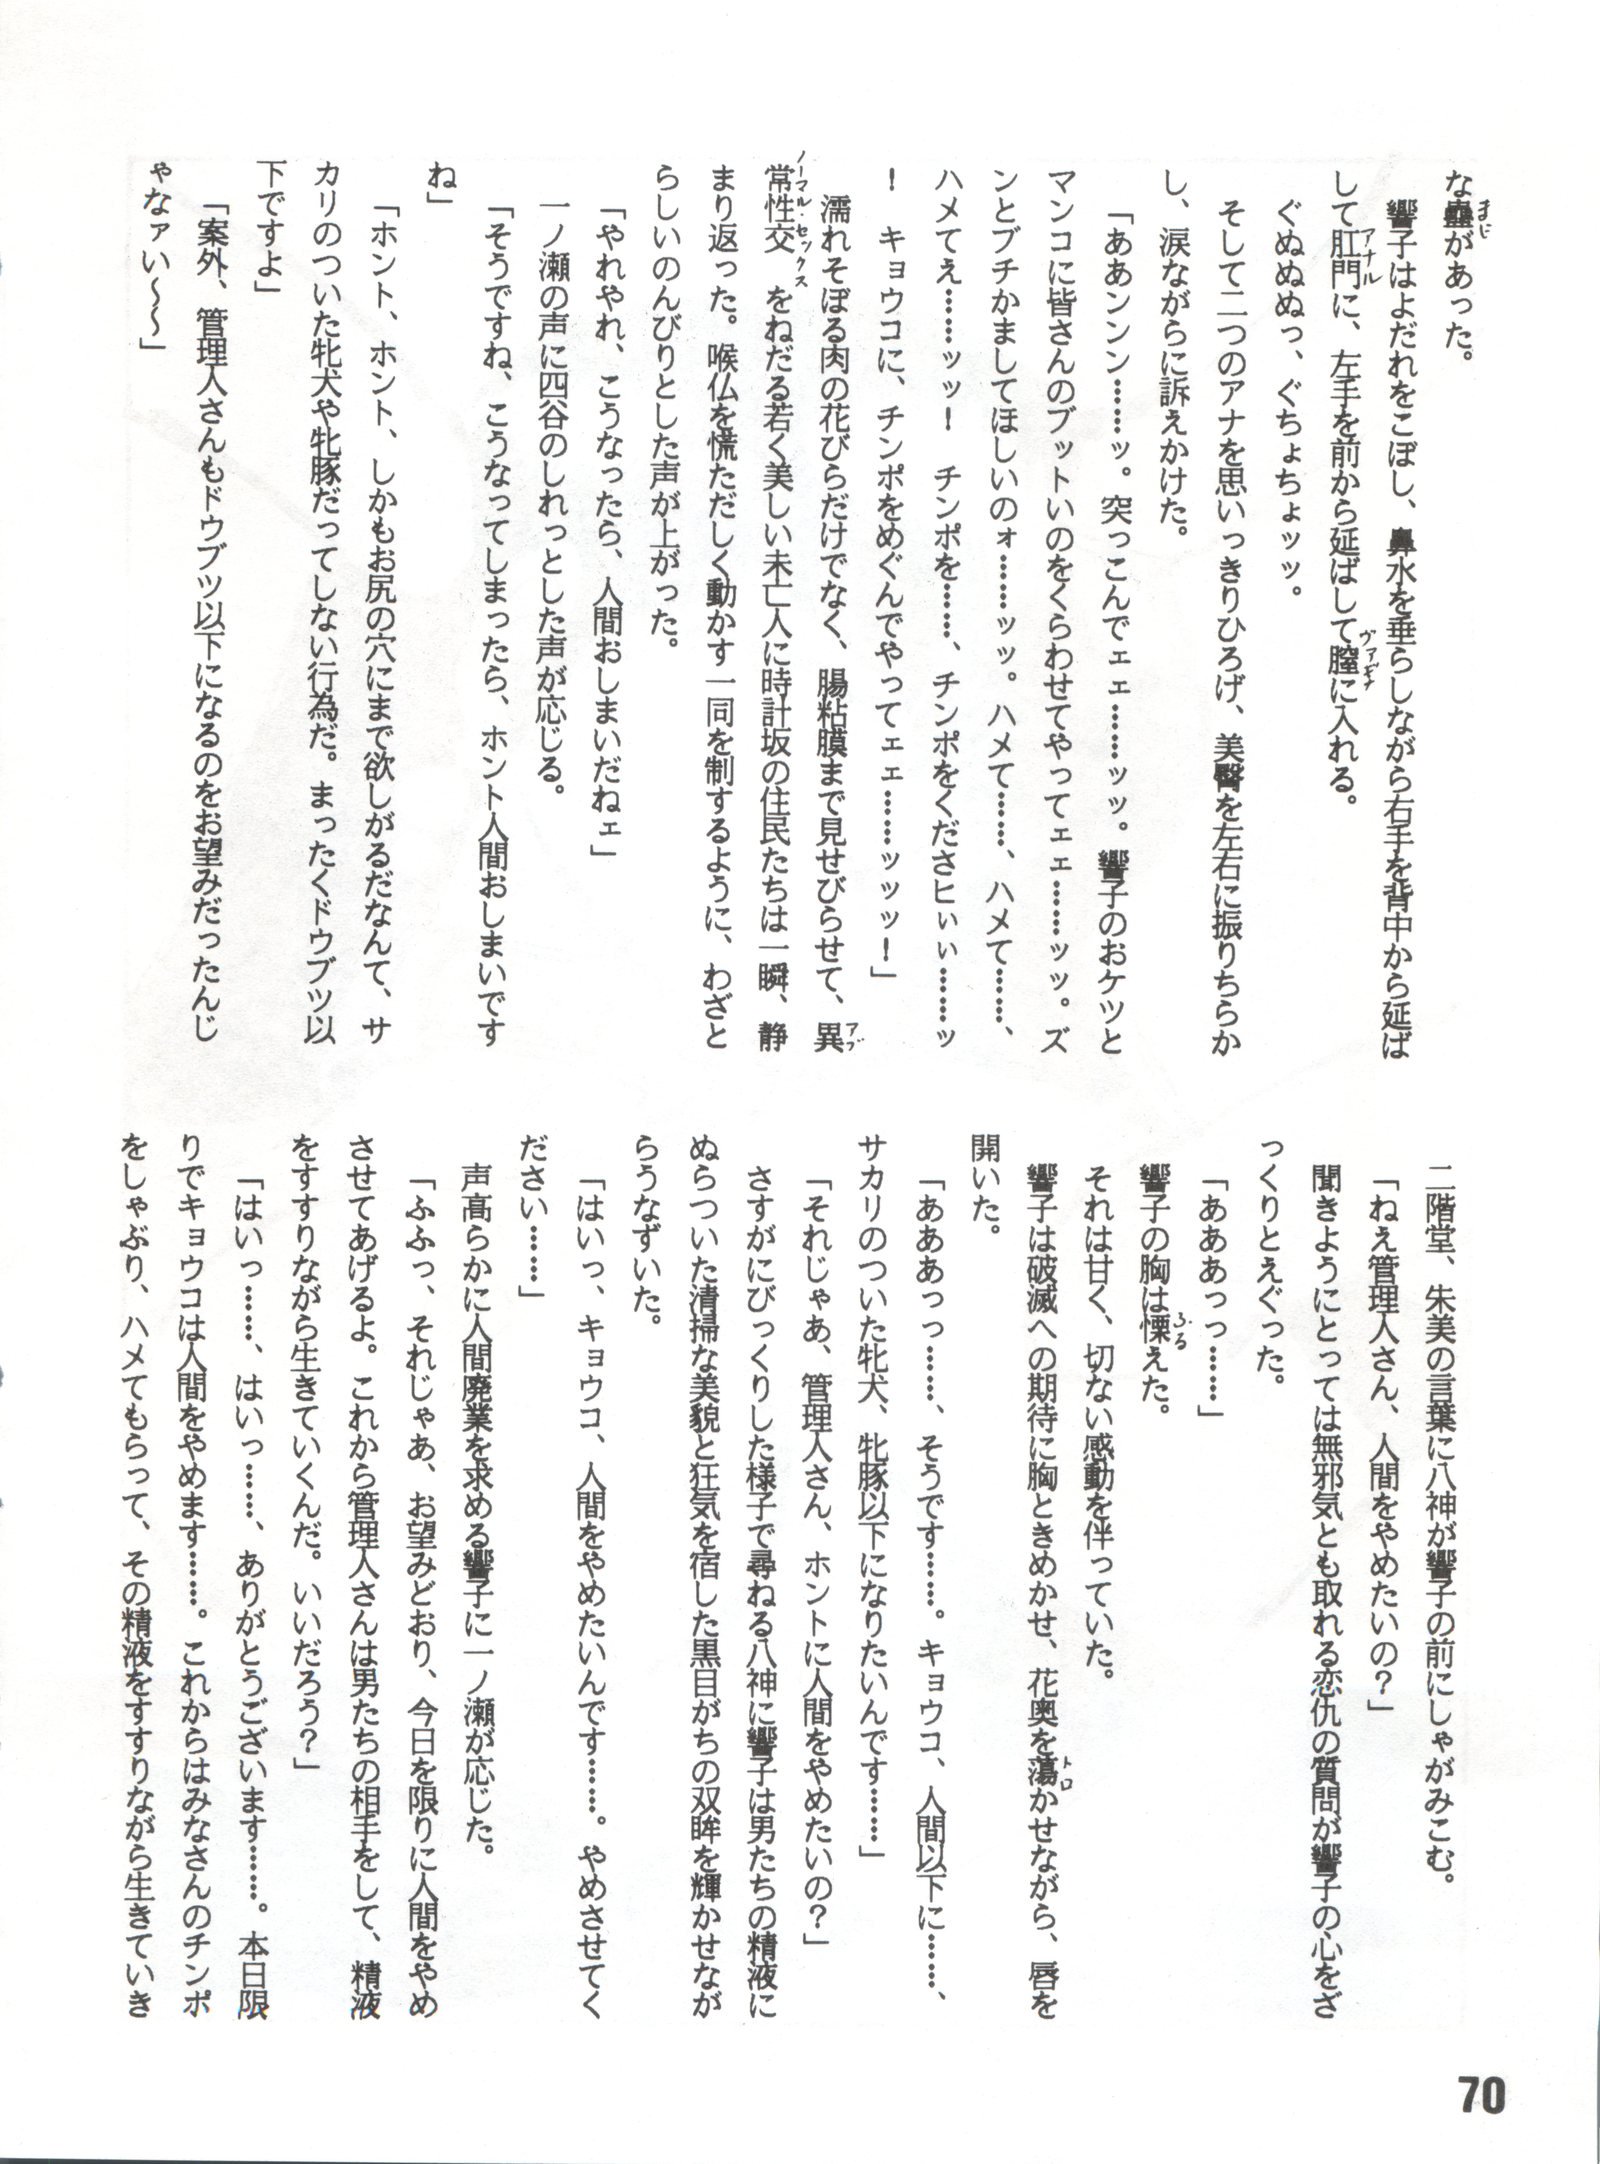 な蠱まじがあった。
　響子はよだれをこぼし、鼻水を垂らしながら右手を背中から延ば
して肛門アナルに、左手を前から延ばして膣ヴァギナに入れる。
　ぐぬぬぬっ、ぐちょちょッッ。
　そして二つのアナを思いっきりひろげ、美臀を左右に振りちらか
し、涙ながらに訴えかけた。
　「ああンンン……ッ。突っこんでェェ……ッッ。響子のおケツと
マンコに皆さんのブットいのをくらわせてやってェェ……ッッ。ズ
ンとブチかましてほしいのォ……ッッ。ハメて……、ハメて……、
ハメてえ……ッッ！　チンポを……、チンポをくださヒぃぃ……ッ
！　キョウコに、チンポをめぐんでやってェェ……ッッッ！」
　濡れそぼる肉の花びらだけでなく、腸粘膜まで見せびらせて、異アブ
常性交ノーマル・セックスをねだる若く美しい未亡人に時計坂の住民たちは一瞬、静
まり返った。喉仏を慌ただしく動かす一同を制するように、わざと
らしいのんびりとした声が上がった。
　「やれやれ、こうなったら、人間おしまいだねェ」
　一ノ瀬の声に四谷のしれっとした声が応じる。
　「そうですね、こうなってしまったら、ホント人間おしまいです
ね」
　「ホント、ホント、しかもお尻の穴にまで欲しがるだなんて、サ
カリのついた牝犬や牝豚だってしない行為だ。まったくドウブツ以
下ですよ」
　「案外、管理人さんもドウブツ以下になるのをお望みだったんじ
ゃなァい〜〜〜」
　二階堂、朱美の言葉に八神が響子の前にしゃがみこむ。
　「ねえ管理人さん、人間をやめたいの？」
　聞きようにとっては無邪気とも取れる恋仇の質問が響子の心をざ
っくりとえぐった。
　「あああっっ……」
　響子の胸は慄ふるえた。
　それは甘く、切ない感動を伴っていた。
　響子は破滅への期待に胸ときめかせ、花奥を蕩トロかせながら、唇を
開いた。
　「あああっっ……、そうです……。キョウコ、人間以下に……、
サカリのついた牝犬、牝豚以下になりたいんです……」
　「それじゃあ、管理人さん、ホントに人間をやめたいの？」
　さすがにびっくりした様子で尋ねる八神に響子は男たちの精液に
ぬらついた清掃な美貌と狂気を宿した黒目がちの双眸を輝かせなが
らうなずいた。
　「はいっ、キョウコ、人間をやめたいんです……。やめさせてく
ださい……」
　声高らかに人間廃業を求める響子に一ノ瀬が応じた。
　「ふふっ、それじゃあ、お望みどおり、今日を限りに人間をやめ
させてあげるよ。これから管理人さんは男たちの相手をして、精液
をすすりながら生きていくんだ。いいだろう？」
　「はいっ……、はいっ……、ありがとうございます……。本日限
りでキョウコは人間をやめます……。これからはみなさんのチンポ
をしゃぶり、ハメてもらって、その精液をすすりながら生きていき
70